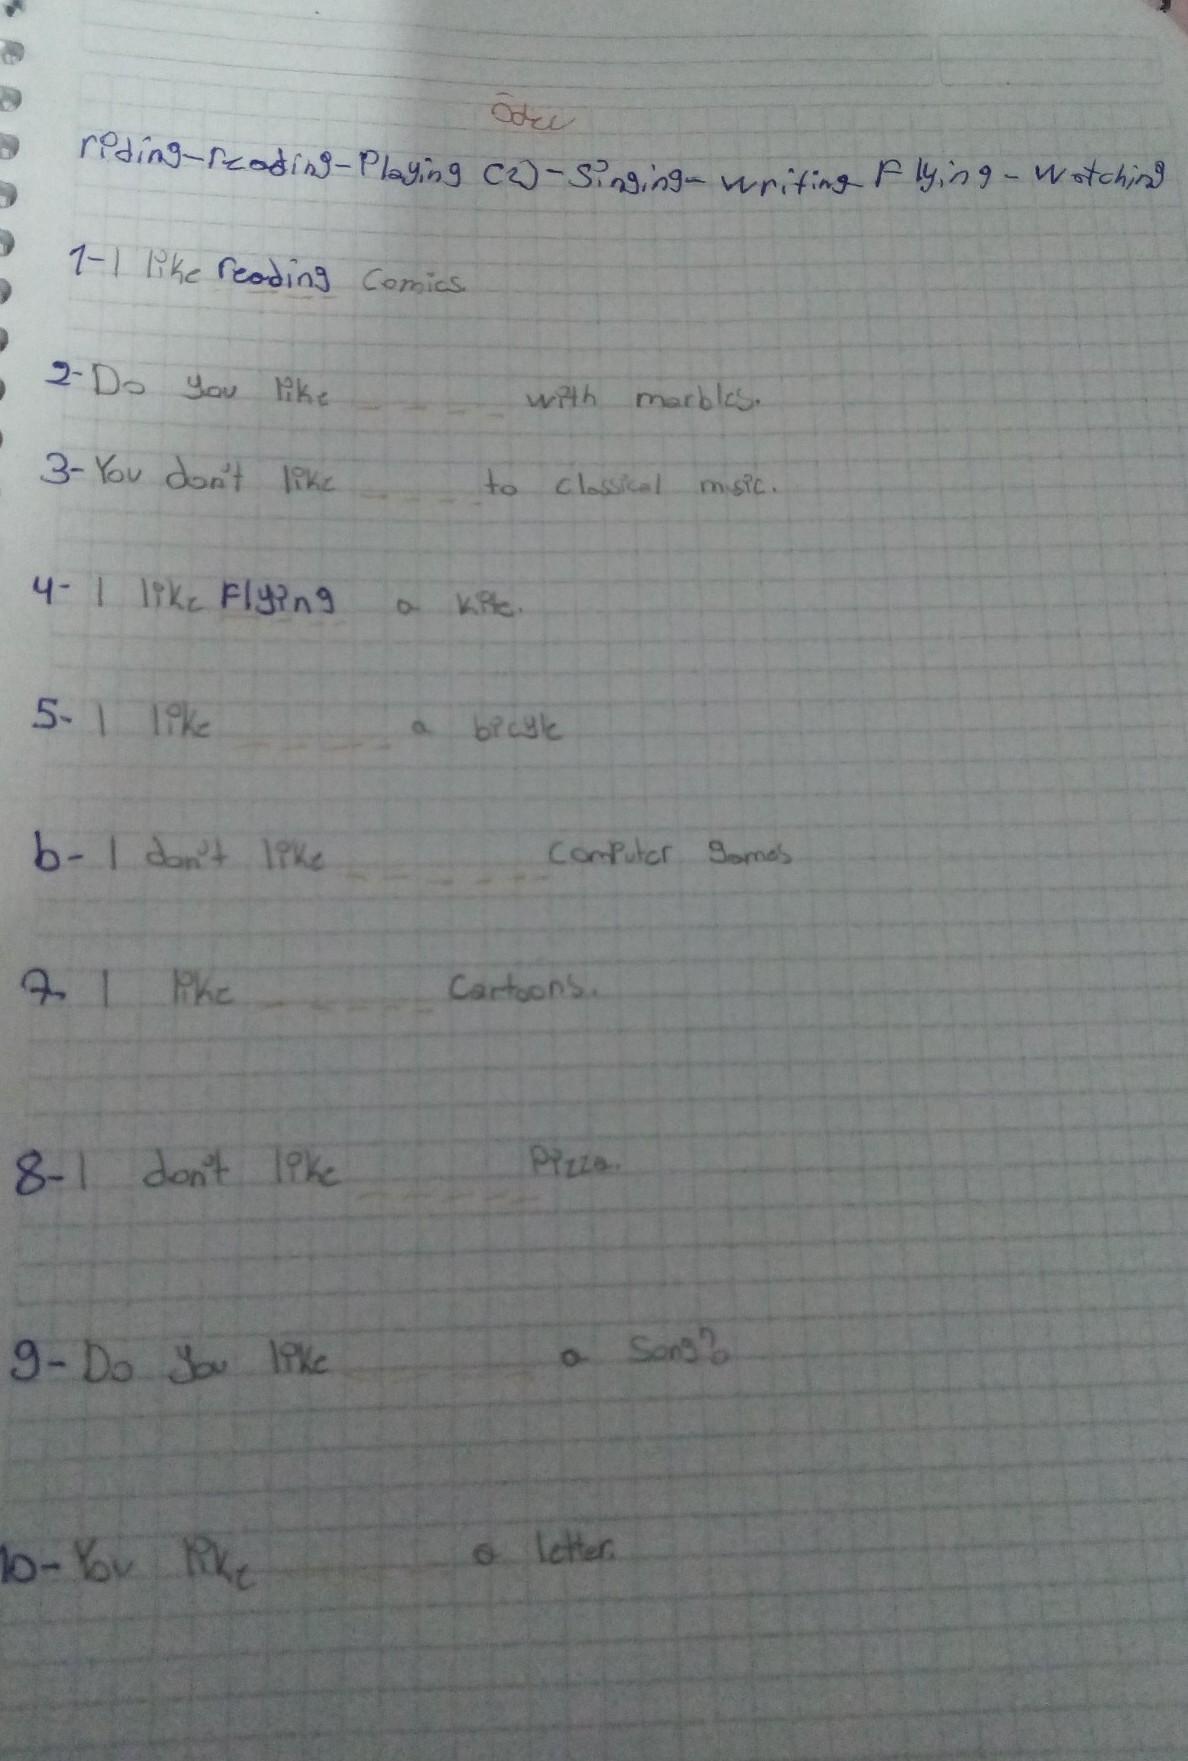 Ödev
riding-reading-Playing (2)-Singing-writing-Flying-watching
1-I like reading Comics
2-Do you like _ _ _ _ with marbles.
3-You don't like _ _ _ _ to classical music.
4-I like Flying a kite.
5-I like _ _ _ _ _ a bicycle
6-I don't like _ _ _ _ _ _ Computer games
7-I like _ _ _ _ _ Cartoons.
8-I don't like _ _ _ _ _ _ Pizza.
9-Do you like _ _ _ _ _ a Song?
10-You like _ _ _ _ _ a letter.